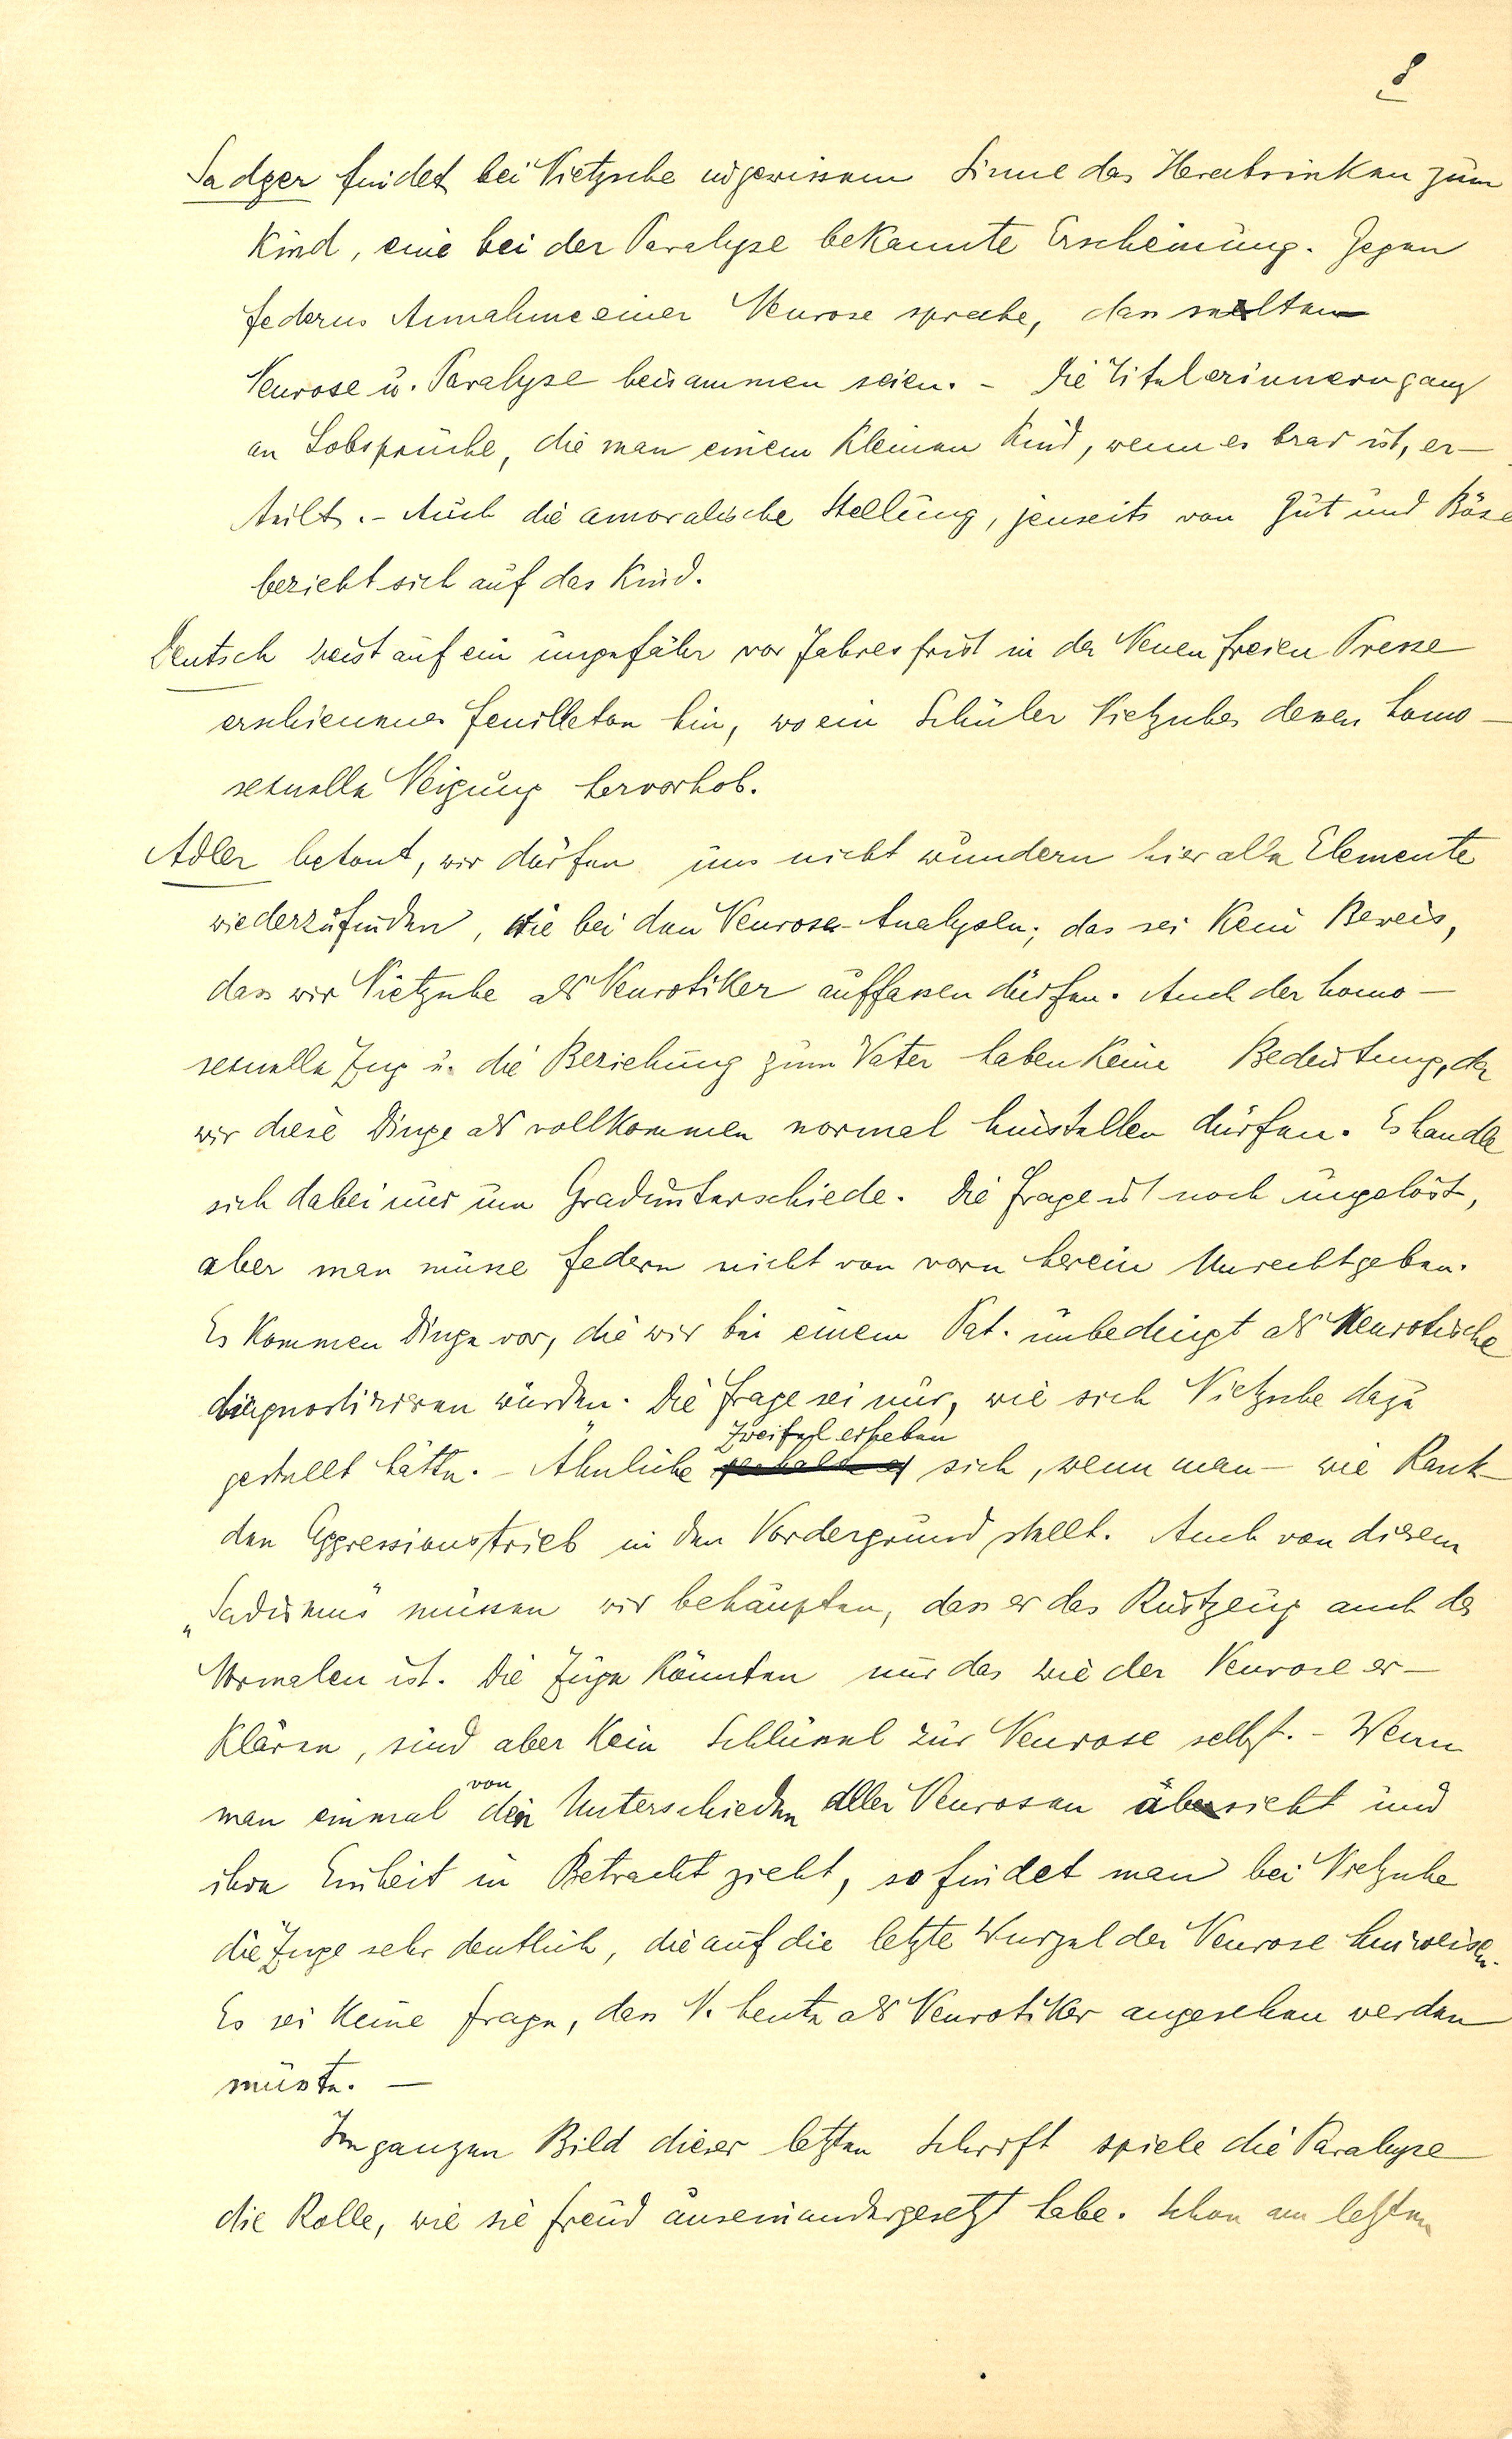 8
Sadger findet bei Nietzsche in gewissem Sinne das Herabsinken zum
Kind, eine bei der Paralyse bekannte Erscheinung. Gegen
Federns Annahme einer Neurose spreche, dass selten
Neurose u. Paralyse beisammen seien. - Die Titel erinnern ganz
an Lobsprüche, die man einem kleinen Kind, wenn es brav ist, er-
teilt. - Auch die amoralische Stellung, jenseits von Gut und Böse
bezieht sich auf das Kind.
Deutsch weist auf ein ungefähr vor Jahresfrist in der Neuen freien Presse
erschienenes Feuilleton hin, wo ein Schüler Nietzsches dessen homo-
sexuelle Neigung hervorhob.
Adler betont, wir dürfen uns nicht wundern hier alle Elemente
wiederzufinden, wie bei den Neurose-Analysen; das sei kein Beweis,
dass wir Nietzsche als Neurotiker auffassen dürfen. Auch der homo-
sexuelle Zug u. die Beziehung zum Vater haben keine Bedeutung, da
wir diese Dinge als vollkommen normal hinstellen dürfen. Es handle
sich dabei nur um Gradunterschiede. Die Frage ist noch ungelöst,
aber man müsse Federn nicht von vorn herein Unrecht geben.
Es kommen Dinge vor, die wir bei einem Pat. unbedingt als Neurotische
diagnostizieren würden. Die Frage sei nur, wie sich Nietzsche dazu
gestellt hätte. - Ähnliche Zweifel erheben sich, wenn man - wie Rank -
den Aggressionstrieb in den Vordergrund stellt. Auch von diesem
„Sadismus" müssen wir behaupten, dass er das Rüstzeug auch des
Normalen ist. Die Züge könnten nur das Wie der Neurose er-
klären, sind aber kein Schlüssel zur Neurose selbst. - Wenn
man einmal von den Unterschieden aller Neurosen absieht und
ihre Einheit in Betracht zieht, so findet man bei Nietzsche
die Züge sehr deutlich, die auf die letzte Wurzel der Neurose hinweisen.
Es sei keine Frage, dass N. heute als Neurotiker angesehen werden
müsste. -
Im ganzen Bild dieser letzten Schrift spiele die Paralyse
die Rolle, wie sie Freud auseinandergesetzt habe. Schon am letzten